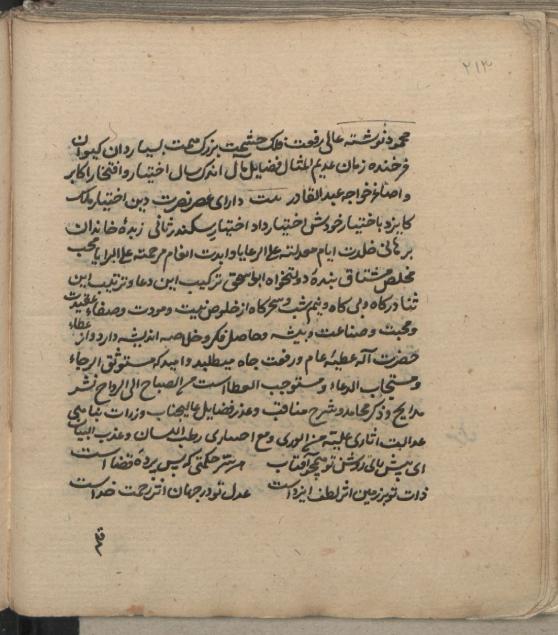 ۲۱۳
محمود نوشته عالی رفعت فلک حشمت بزرگ همت بسیار دان کیوان
فرخنده زمان عدیم المثال فضایل مآل اندک سال اختیار و افتخار اکابر
و اصاغر خواجه عبدالقادر بیت دارای عصر نصرت دین اختیار ملک
کایزد باختیار خودش اختیار داد اختیار سکندر ثانی زبدهٔ خاندان
برهانی خلدت ایام معدلته علی الرعایا و ابدت انعام مرحمته علی البرایا محب
مخلص مشتاق بنده دولتخواه ابواسحق ترکیب این دعا و ترتیب این
ثنا در گاه و بی گاه و نیم شب و سحرگاه از خلوص نیت و مودت و صفاء عقیدت
و محبت و صناعت و پیشه و حاصل فکر و خلاصه اندیشه دارد و از عطاء
حضرت آله عطیهٔ عام و رفعت جاه میطلبد و امید که مستوثق الرجاء
و مستجاب الدعاء و مستوجب العطا است من الصباح الی الرواح نشر
مدایح و ذکر محامد و شرح مناقب و عذر فضایل عالیجناب وزارت
عدالت اثاری علیته من الوری و مع احصاری رطب اللسان و عذب البیان
ای پیش رای روشن تو همچو آفتاب هر سر حکمتی که پس پردهٔ قضا است
ذات تو بر زمین اثر لطف ایزد است عدل تو در جهان اثر رحمت خداست